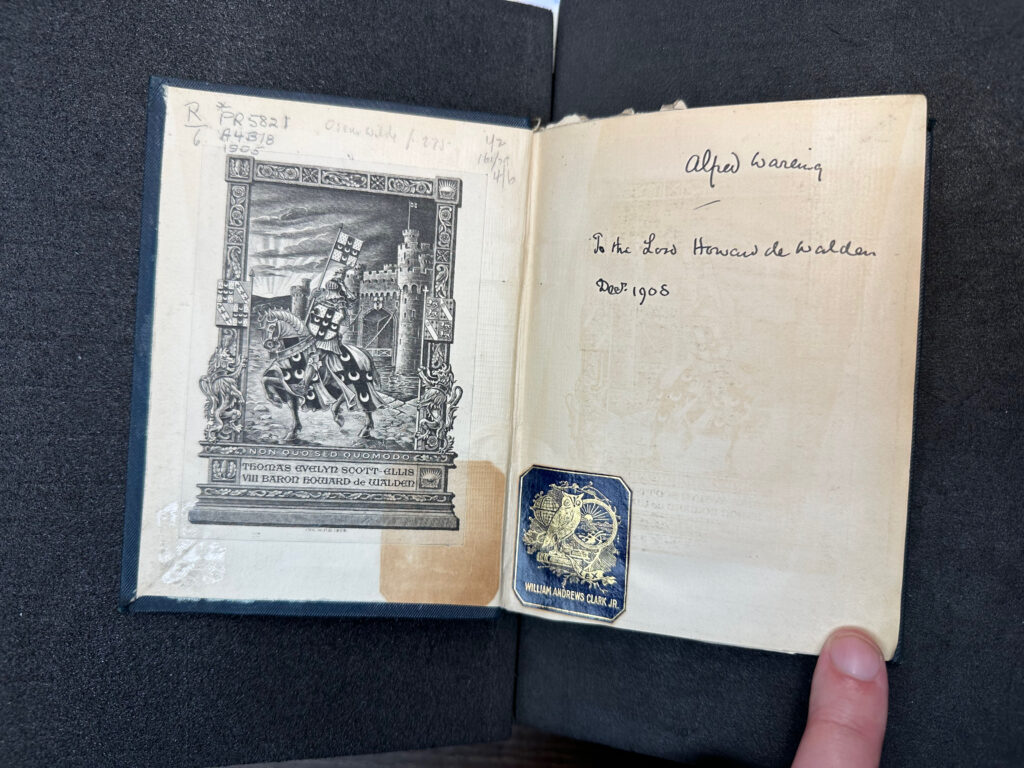 R
6
*PR5821
A4B18
1905
Oscar Wilde
NON QUO SED QUOMODO
THOMAS EVELYN SCOTT-ELLIS
VIII BARON HOWARD de WALDEN
Alfred Wareing
To the Lord Howard de Walden
Decr. 1908
WILLIAM ANDREWS CLARK JR.